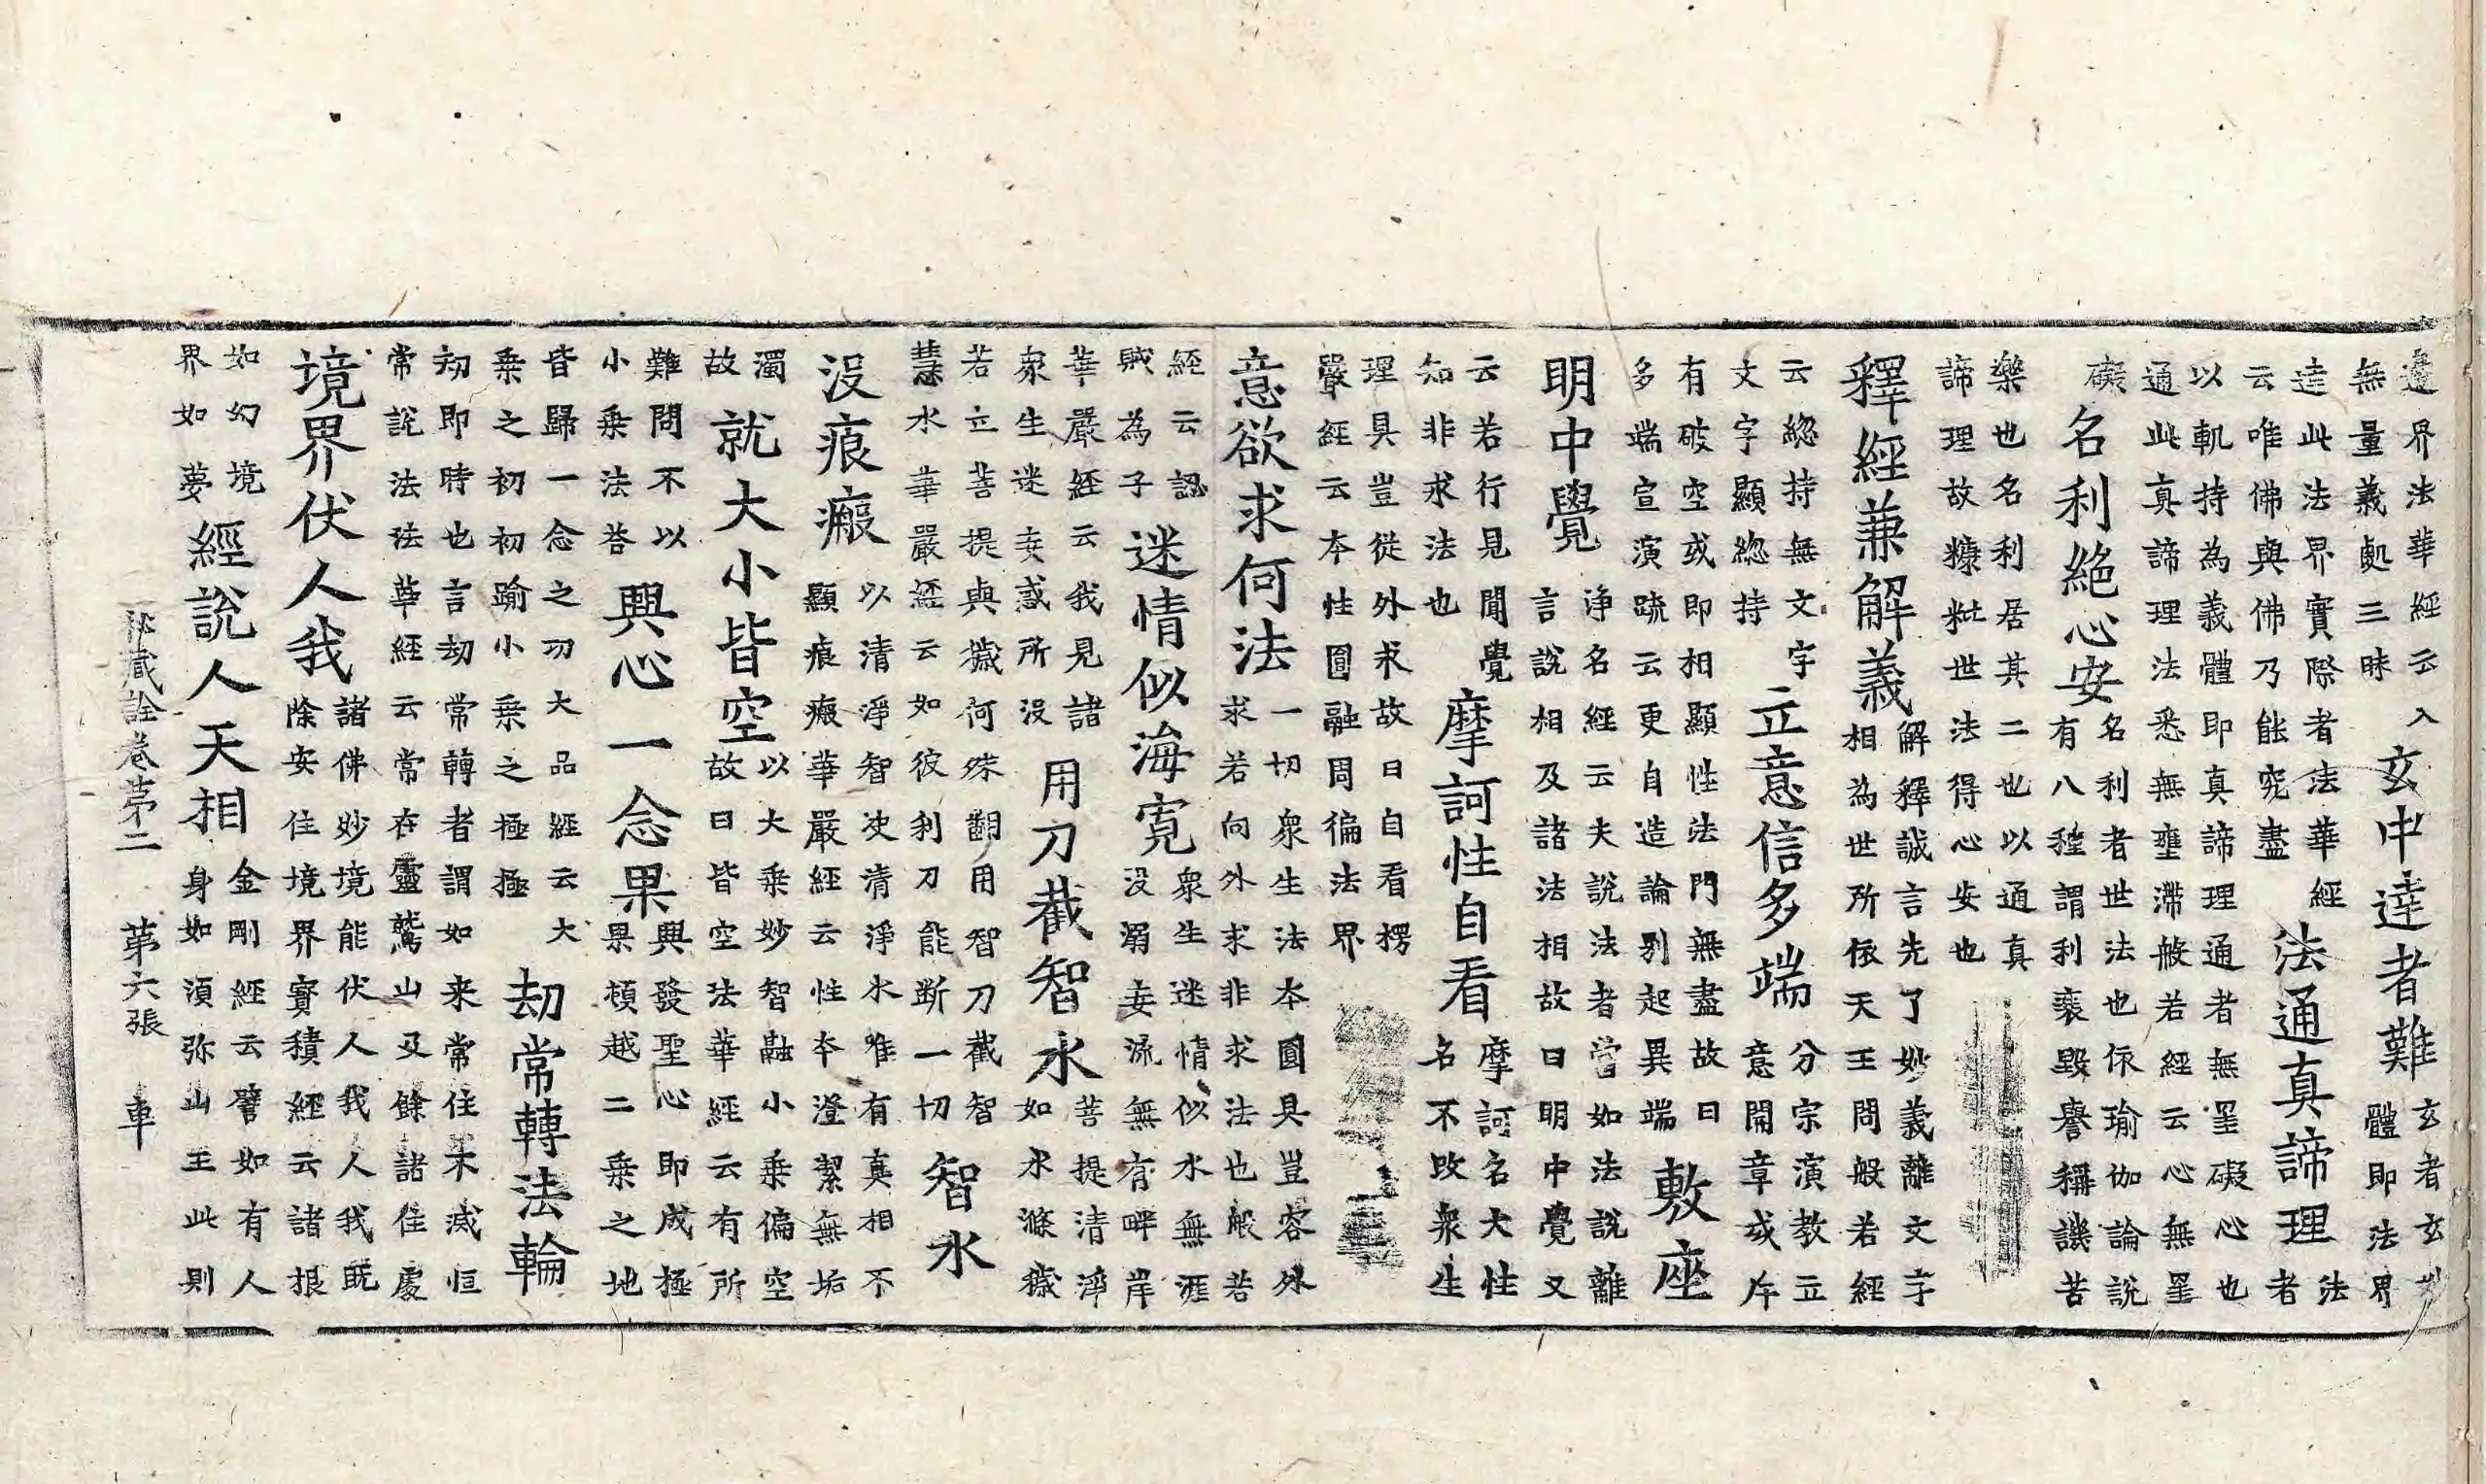 邊界法華經云入
無量義處三昧
玄中達者難
玄者玄妙
體即法界
達此法界實際者法華經
云唯佛與佛乃能究盡
法通真諦理
法
者
以軌持為義體即真諦理通者無罣礙心也
通此真諦理法悉無壅滯般若經云心無罣
礙
名利絕心安
名利者世法也依瑜伽論說
有八種謂利衰毀譽稱譏苦
樂也名利居其二也以通真
諦理故糠粃世法得心安也
釋經兼解義
解釋誠言先了妙義離文字
相為世所依天王問般若經
云緫持無文字
文字顯緫持
立意信多端
分宗演教立
意開章或斥
有破空或即相顯性法門無盡故曰
多端宣演䟽云更自造論別起異端
敷座
明中覺
淨名經云夫說法者當如法說離
言說相及諸法相故曰明中覺又
云若行見聞覺
知非求法也
摩訶性自看
摩訶名大性
名不改衆生
理具豈從外求故曰自看楞
嚴經云本性圓融周徧法界
意欲求何法
一切衆生法本圓具豈容外
求若向外求非求法也般若
經云認
賊為子
迷情似海寬
衆生迷情似水無涯
没溺妄流無有畔岸
華嚴經云我見諸
衆生迷妄惑所没
用刀截智水
菩提清淨
如水滌穢
若立菩提與穢何殊翻用智刀截智
慧水華嚴經云如彼利刀能斷一切
智水
没痕瘢
以清淨智決清淨水唯有真相不
顯痕瘢華嚴經云性本澄絜無垢
濁
故
就大小皆空
以大乗妙智融小乗偏空
故曰皆空法華經云有所
難問不以
小乗法荅
興心一念果
興發聖心即成極
果頓越二乗之地
皆歸一念之功大品經云大
乗之初初踰小乗之極極
劫常轉法輪
刧即時也言刧常轉者謂如来常住不滅恒
常說法法華經云常在靈鷲山及餘諸住處
境界伏人我
諸佛妙境能伏人我人我既
除安住境界寳積經云諸根
如幻境
界如夢
經說人天相
金剛經云譬如有人
身如湏弥山王此則
秘藏詮卷第二 第六張 車